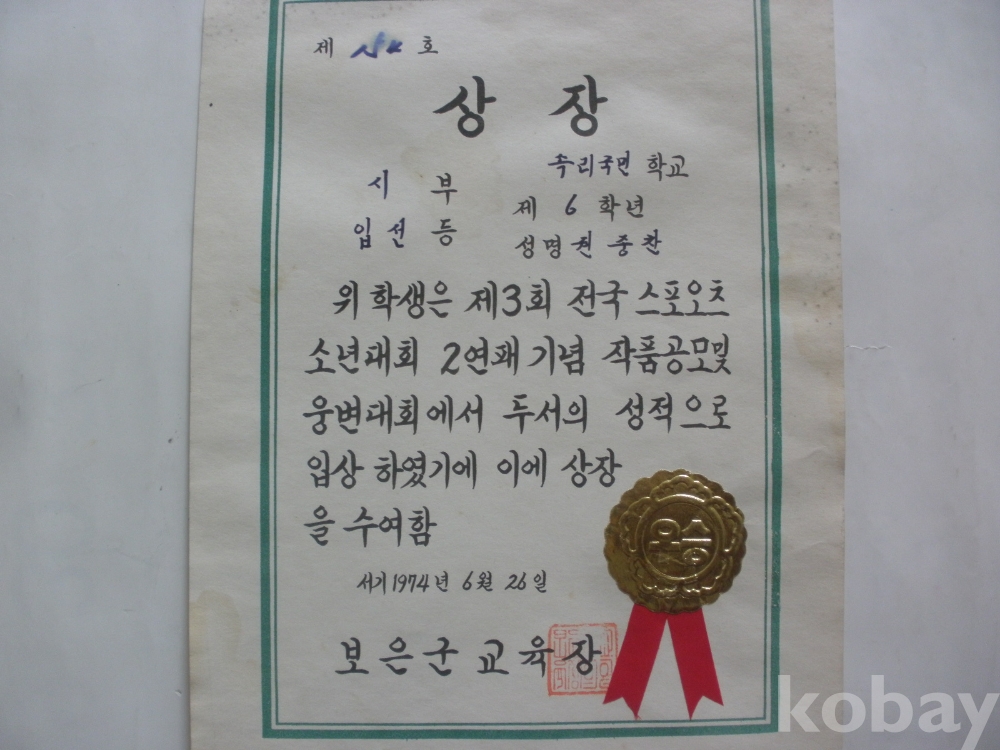 제 호
상 장
속리국민 학교
시 부
제 6 학년
입선 등
성명 권중찬
위 학생은 제3회 전국 스포오츠
소년대회 2연패 기념 작품공모및
웅변대회에서 두서의 성적으로
입상 하였기에 이에 상장
을 수여함
서기 1974년 6월 26일
보은군 교육장
우승
kobay